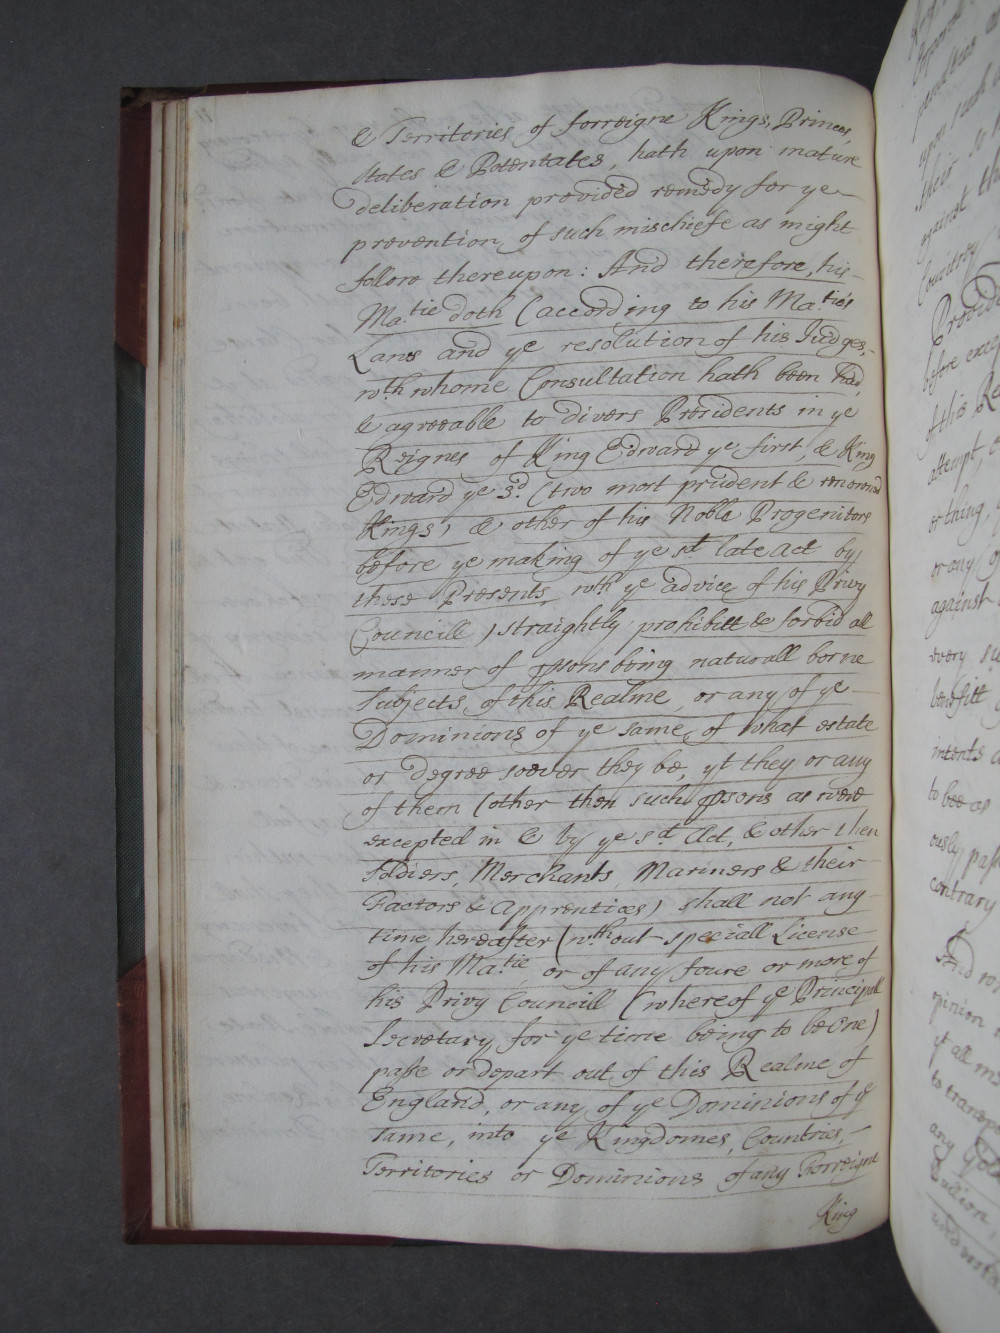 & Territories of forreigne Kings, Princes,
States & Potentates, hath upon mature
deliberation provided remedy for ye
prevention of such mischiefe as might
follow thereupon: And therefore, his
Ma.tie doth (according to his Ma.tie's
Laws and ye resolution of his Judges,
wth whome Consultation hath been had,
& agreeable to divers Presidents in ye
Reignes of King Edward ye first, & King
Edward ye 3d (two most prudent & renowned
Kings) & other of his Noble Progenitors
before ye making of ye sd late Act by
these Presents, wth ye advice of his Privy
Councill) straightly prohibitt & forbid all
manner of psons being naturall borne
Subjects of this Realme, or any of ye
Dominions of ye same, of what estate
or degree soever they be, yt they or any
of them (other then such psons as were
excepted in & by ye sd. Act, & other then
Soldiers, Merchants, Mariners & their
Factors & Apprentices) shall not any
time hereafter (wthout speciall License
of his Ma.tie or of any foure or more of
his Privy Councill (whereof ye Principall
Secretary for ye time being to be One)
passe or depart out of this Realme of
England, or any of ye Dominions of ye
same, into ye Kingdomes, Countries,
Territories or Dominions of any Forreigne
King
Provid
before exce
of this Re
attempt, 
or thing,
or any
against
every su
benefitt
intents
to bee as
ously pass
contrary
And
pinion
yt all
to transp
any
Bullion,